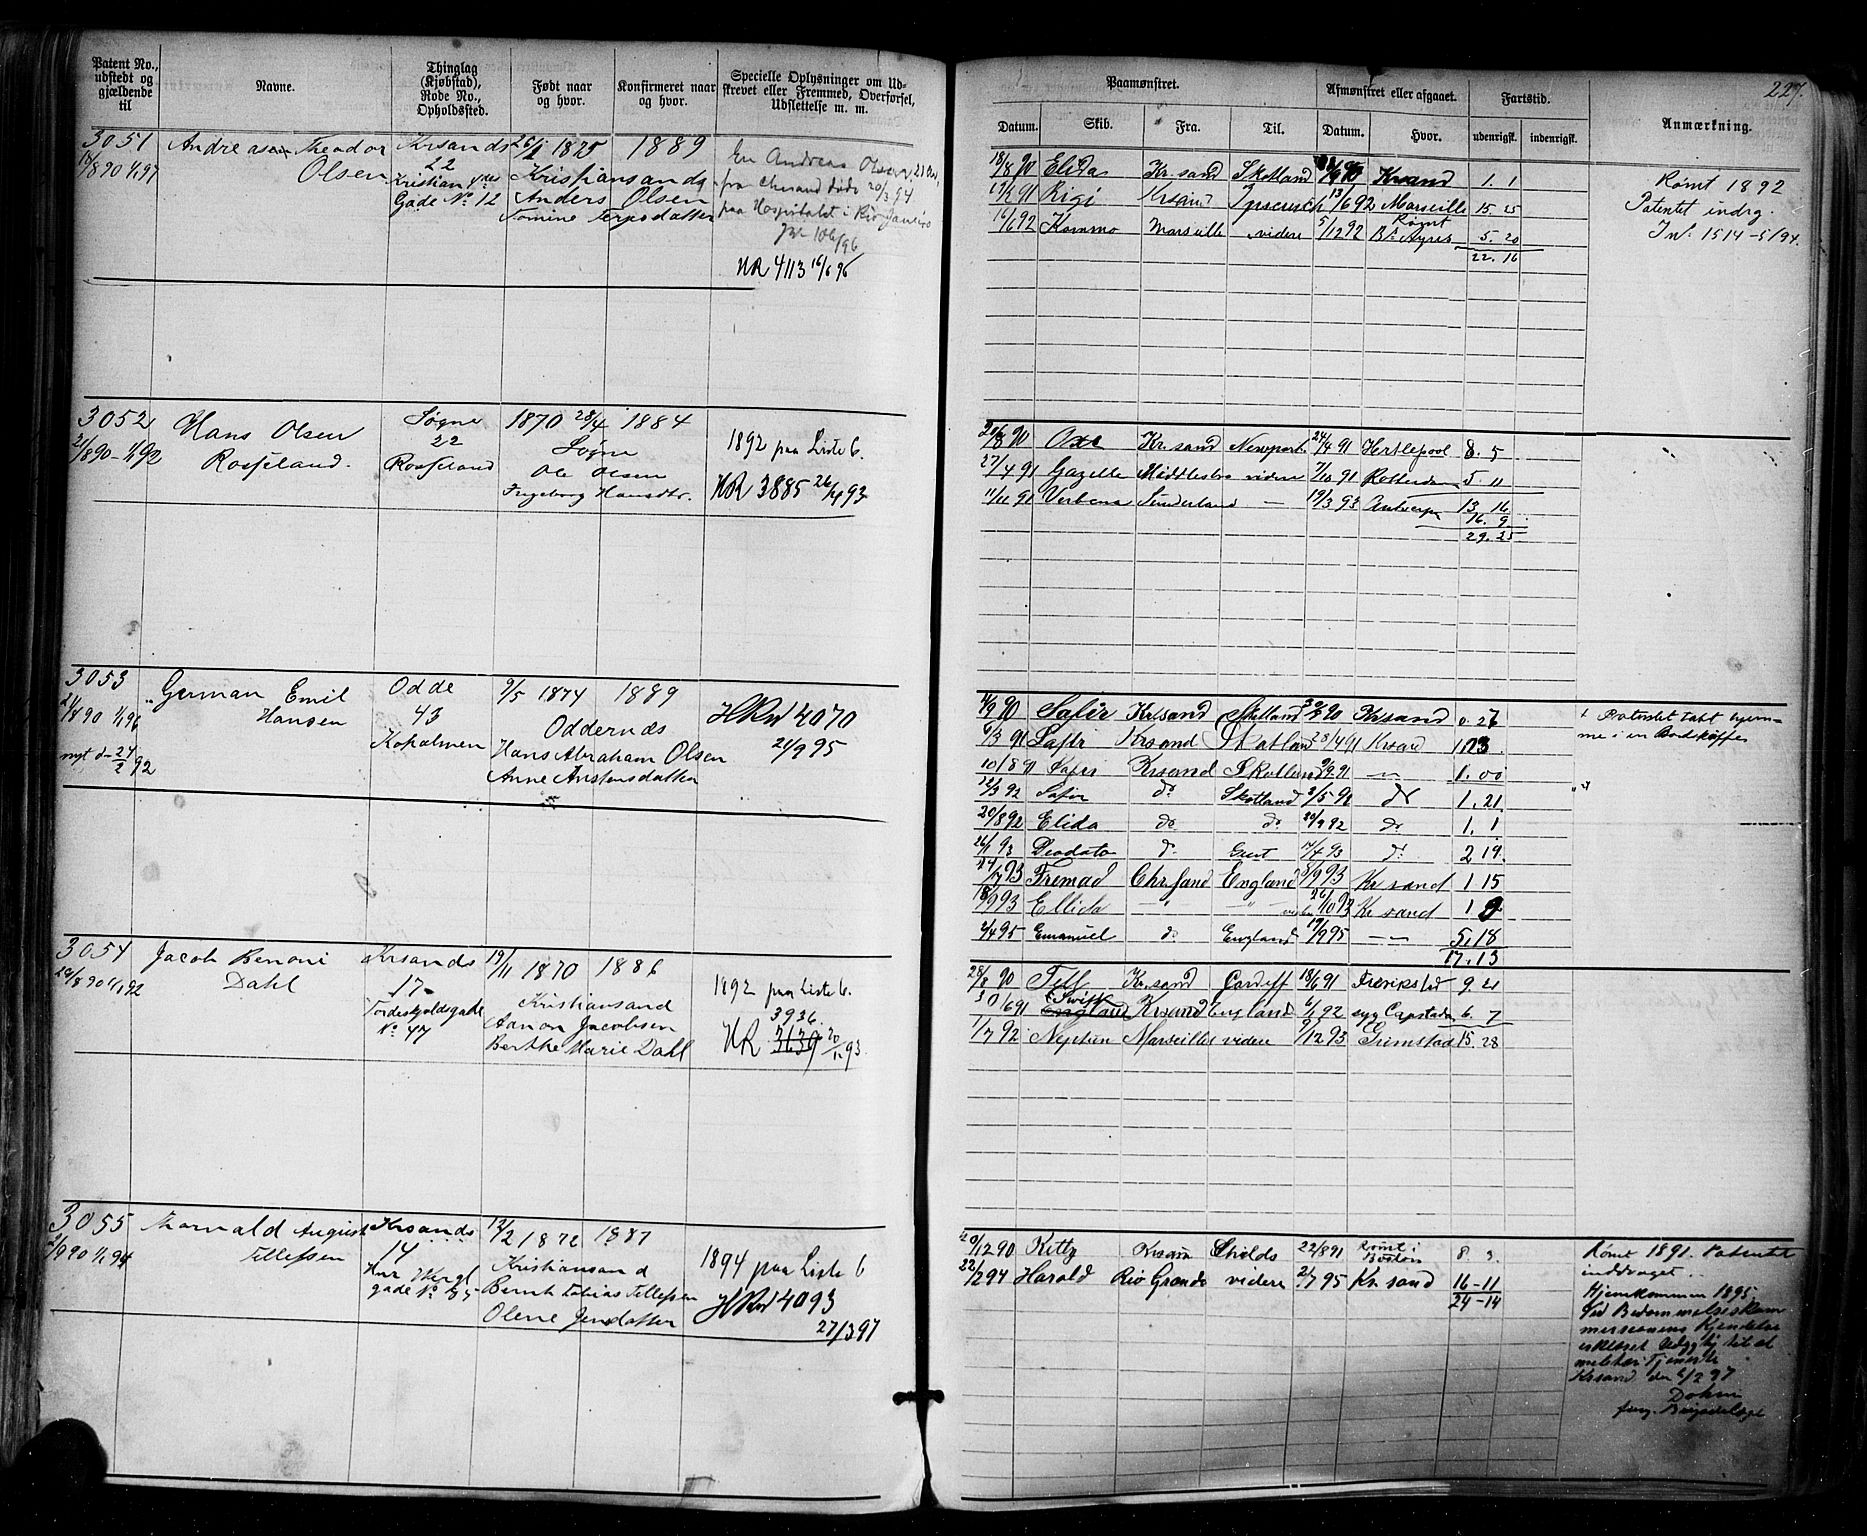 Patent No., udstedt og gjældende til
Navne.
Thinglag (Kjøbstad), Rode No., Opholdssted.
Født naar og hvor.
Konfirmeret naar og hvor.
Specielle Oplysninger om Udskrevet eller Fremmed, Overførsel, Udslettelse m. m.
Paamønstret.
Afmønstret eller afgaaet.
Fartstid.
Anmærkning.
227.
Datum.
Skib.
Fra.
Til.
Datum.
Hvor.
udenrigsk.
indenrigsk.
3051
18/8 90 1/1 97
Andreas Theodor
Olsen
Krsands
22
Kristian 4des
Gade No 12
1875
1889
Kristiansands
Anders Olsen
Tomine Terjesdatter
En Andreas Olsen 21 Aar
fra Chrsand døde 20/3 94
paa Hospitalet i Rio Janeiro
Jvr 106/96
HR 4113 16/6 96
18/8 90 Elida Kr.sand Skotland Krsand 1. 1
Rigi Krsand 13/6 92 Marseille 15. 25
16/6 92 Kommo Marseille videre 5/12 92 Rømt Bs Ayres 5. 20
22. 16
Rømt 1892
Patentet indrg.
Inf. 1514-5/94.
3052
21/8 90 - 1/1 92
Hans Olsen
Rosseland.
Søgne
22
Rosseland
1870 28/4 1884
Søgne
Ole Olsen
Ingeborg Hansdtr.
1892 paa Liste 6.
HR 3885 26/4 93
90 Oxe Kr.sand Newport 24/4 91 Hertlepool 8. 5
27/4 91 Gazelle Middlesbro videre 7/10 91 Rotterdam 5. 11
11/11 91 Verbena Sunderland — 19/3 93 Antwerpn 13. 16
16. 9.
29. 25
3053
21/8 90 1/1 96
nyt d- 24/2 92
German Emil
Hansen
Odde
43
Koholmen
9/5 1874 1889
Oddernds
Hans Abraham Olsen
Anne Anstensdatter
HRul 4070
21/9 95
90 Safir Krlsand Skotland 90 Krsand 0. 26
6/3 91 Safir Krsand Skotland 28/4 91 Krsand 1 13
10/8 91 Safir Krsand Skotland 91 — 1. 00
92 Safir do Skotland 2/5 92 do 1. 21
20/8 92 Elida do do 20/9 92 do 1. 1
26/1 93 Deodata do 4/4 93 do 2 19.
24/7 93 Fremad Chr.sand England 5/9 93 Kr sand 1 15
18/9 93 Ellida — — videre 26/10 93 Kr sand 1 9
4/4 95 Emanuel do England 19/9 95 — 5. 18
17. 13
+ Patentet tabt hjem-
me i en Bordskuffe
3054
20/8 90 1/1 92
Jacob Benoni
Dahl
Krsands
17
Tordenskjoldsgade
No 47
19/11 1870 1886
Kristiansand
Aanon Jacobsen
Berthe Marie Dahl
1892 paa Liste 6.
3936.
HR 3639 20/11 93.
28/8 90 Tell Kr.sand Cardiff 18/6 91 Fredrikstad 9. 21
30/6 91 Swift England Krsand England 6/1 92 syg Capstaden 6. 7
1/7 92 Neptun Marseilles videre 9/12 93 Grimstad 15. 28
3055
2/9 90 1/1 94
Thorvald August
Tellefsen
Krsands
14
Hnr Wergl.
gade No 85
12/2 1872 1887
Kristiansand
Bernt Tobias Tellefsen
Olene Jensdatter
1894 paa Liste 6
HRul 4093
27/3 97
20/12 90 Kitty Krsan Shields 22/8 91 Rømt i Boston 8 3.
22/2 94 Harald Rio Grande videre 2/7 95 Kr sand 16-11
24-14
Rømt 1891. Patentet
inddraget.
Hjemkommen 1895.
Ved Bedømmelseskom
missionens Kjendelse
erklæret udygtig til al
militær Tjeneste
Krsand den 6/2 97
Dohm
fung. Brigadelæge